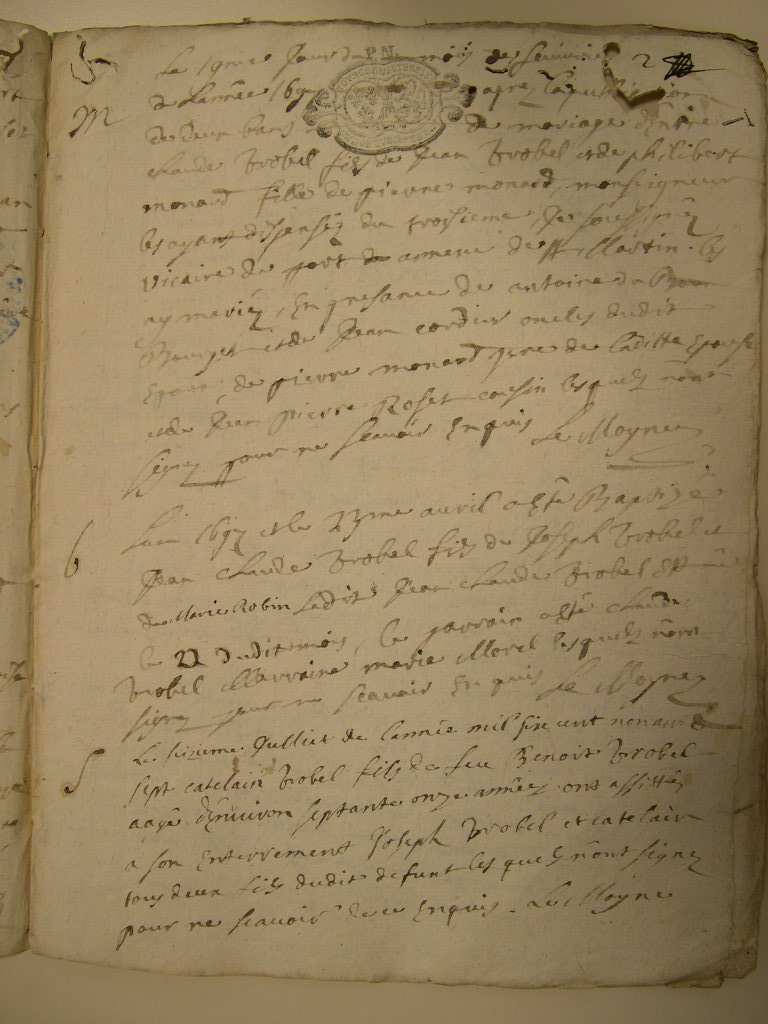 P.N.
2
M
Le 19me Jour du mois de feuvrier
de L'année 169 apre la publication
de deux bans de mariage Entre
claude Trobel fils de Jean Trobel et de philiberte
monard fille de pierre monard, monseigneur
les ayant dispensés du troisieme Je soussigné
vicaire du de St Martin. les
ay mariéz, En presance de antoine du
Bourget et de Jean cordier oncles dudit
Epoux, de pierre monard pere de laditte Epouse
et de Jean pierre Roset cousin lesquels n'ont
signez pour ne scavoir Enquis Le Moyne
6
L'an 1697 et le 23me avril a Esté Baptizé
Jean claude Trobel fils de Joseph Trobel et
de Marie Robin Ledit Jean claude Trobel Est né
le 22 dudit mois, le parrain a Esté claude
Trobel Marraine marie Morel lesquels n'ont
signez pour ne scavoir Enquis Le Moyne
S
Le sizieme Julliet de l'année mil six cent nonante
sept catelain Trobel fils de feu Benoit Trobel
aagé d'Environ septante onze années ont assistéz
a son Enterrement Joseph Trobel et catelain
tous deux fils dudit defunt les quels n'ont signez
pour ne scavoir de ce Enquis. Le Moyne